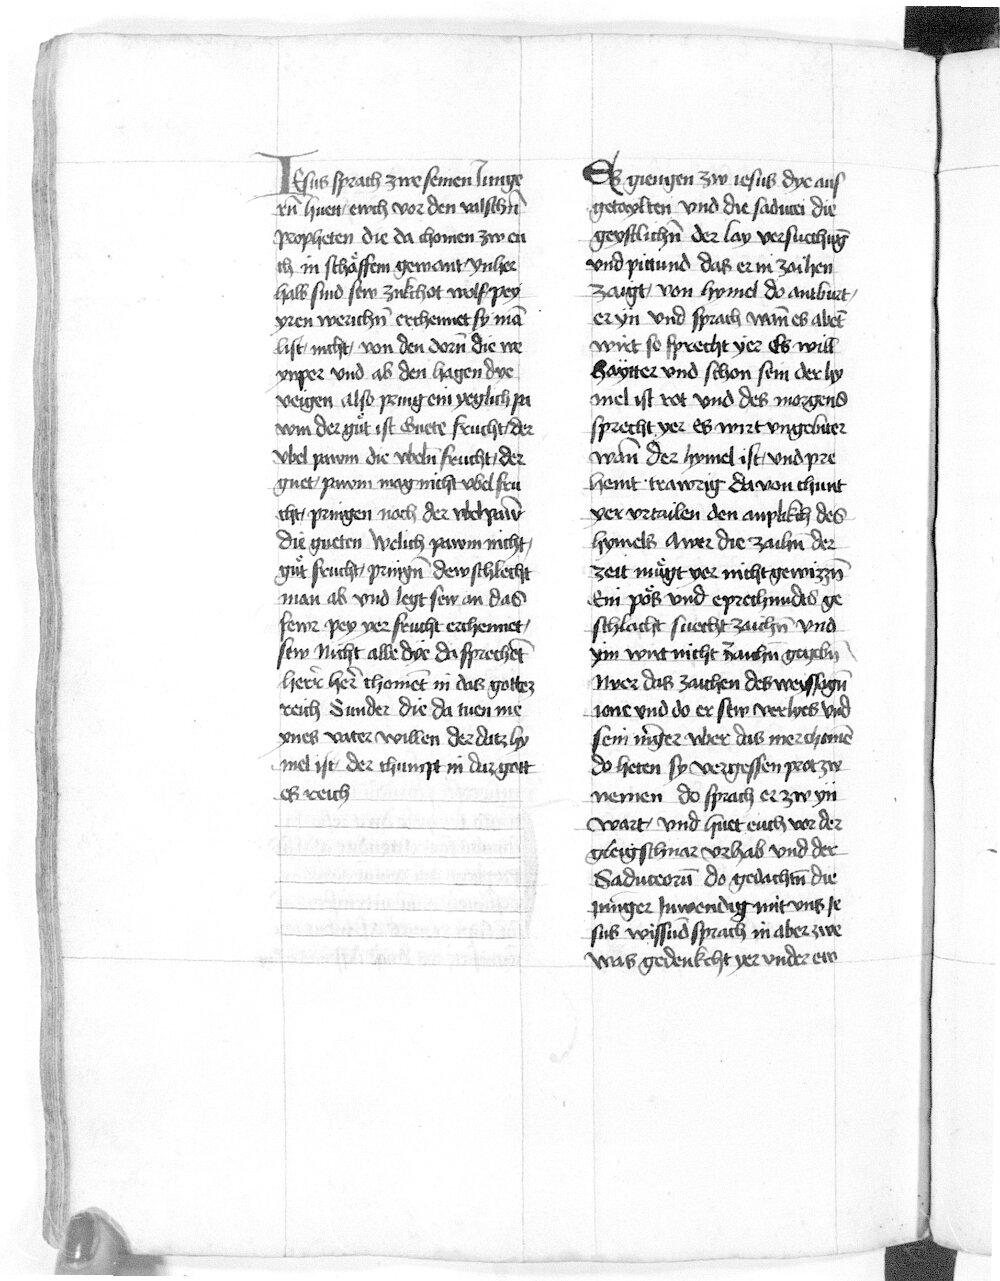 Jesus sprach zwe seinen Junge
rn̄ huett ewch vor den valschn̄
propheten die da chomen zw eu
ch in schäffem gewant ynher
halb sind sew zukchot wolf pey
yren werichn̄ erchennet sy mā
list nicht von den dorn̄ die we
ynper vnd ab den hagen dye
veigen also pring ein yeglich pa
wm der gůt ist Guete frucht der
vbel pawm die vbeln̄ frucht der
guet pawm mag nicht vbel fru
cht pringen noch der vbel pawm̄
die gueten Welich pawm nicht
gůt frucht pringn̄ dew schlecht
man ab vnd legt sew an das
fewr pey yer frucht erchennet
sew Nicht alle dye da sprechēt
herr her̄ chomēt in das gottez
reich Sunder die da tuen me
ynes vater willen der datz hy
mel ist der chumpt in daz gott
es reich
Es giengen zw iesus dye aus
getaylten vnd die saducei die
geystlichn̄ der lay versuechūg
vnd pittund das er in zaihen
zaigt von hymel do antburt
er yn vnd sprach wan̄ es abēt
wirt so sprecht yer Es will
haytter vnd schon sein der hy
mel ist rot vnd des morgens
sprecht yer Es wirt vngebiter
wan̄ der hymel ist vnd pre
hemt trawrig da von chunt
yer vrtailen den anplikch des
hymels Awer die zaihn̄ der
zeit můgt yer nicht gewizzn̄
Ein pös vnd eprechundes ge
schlächt suecht zaichn̄ vnd
ym wirt nicht zaichn̄ gegebn̄
Nuer das zaichen des weyssagn̄
ione vnd do er sew verlyes vnd
sein iu̅ger vber das mer chomē
do heten sy vergessen prot zw
nemen do sprach er zw yn
Wart vnd huet euch vor der
gleigschnar vrhab vnd der
Saduceorū do gedachtn̄ die
iunger Inwendig mit vns Je
sus wissūd sprach in aber zwe
was gedenkcht yer vnder ew